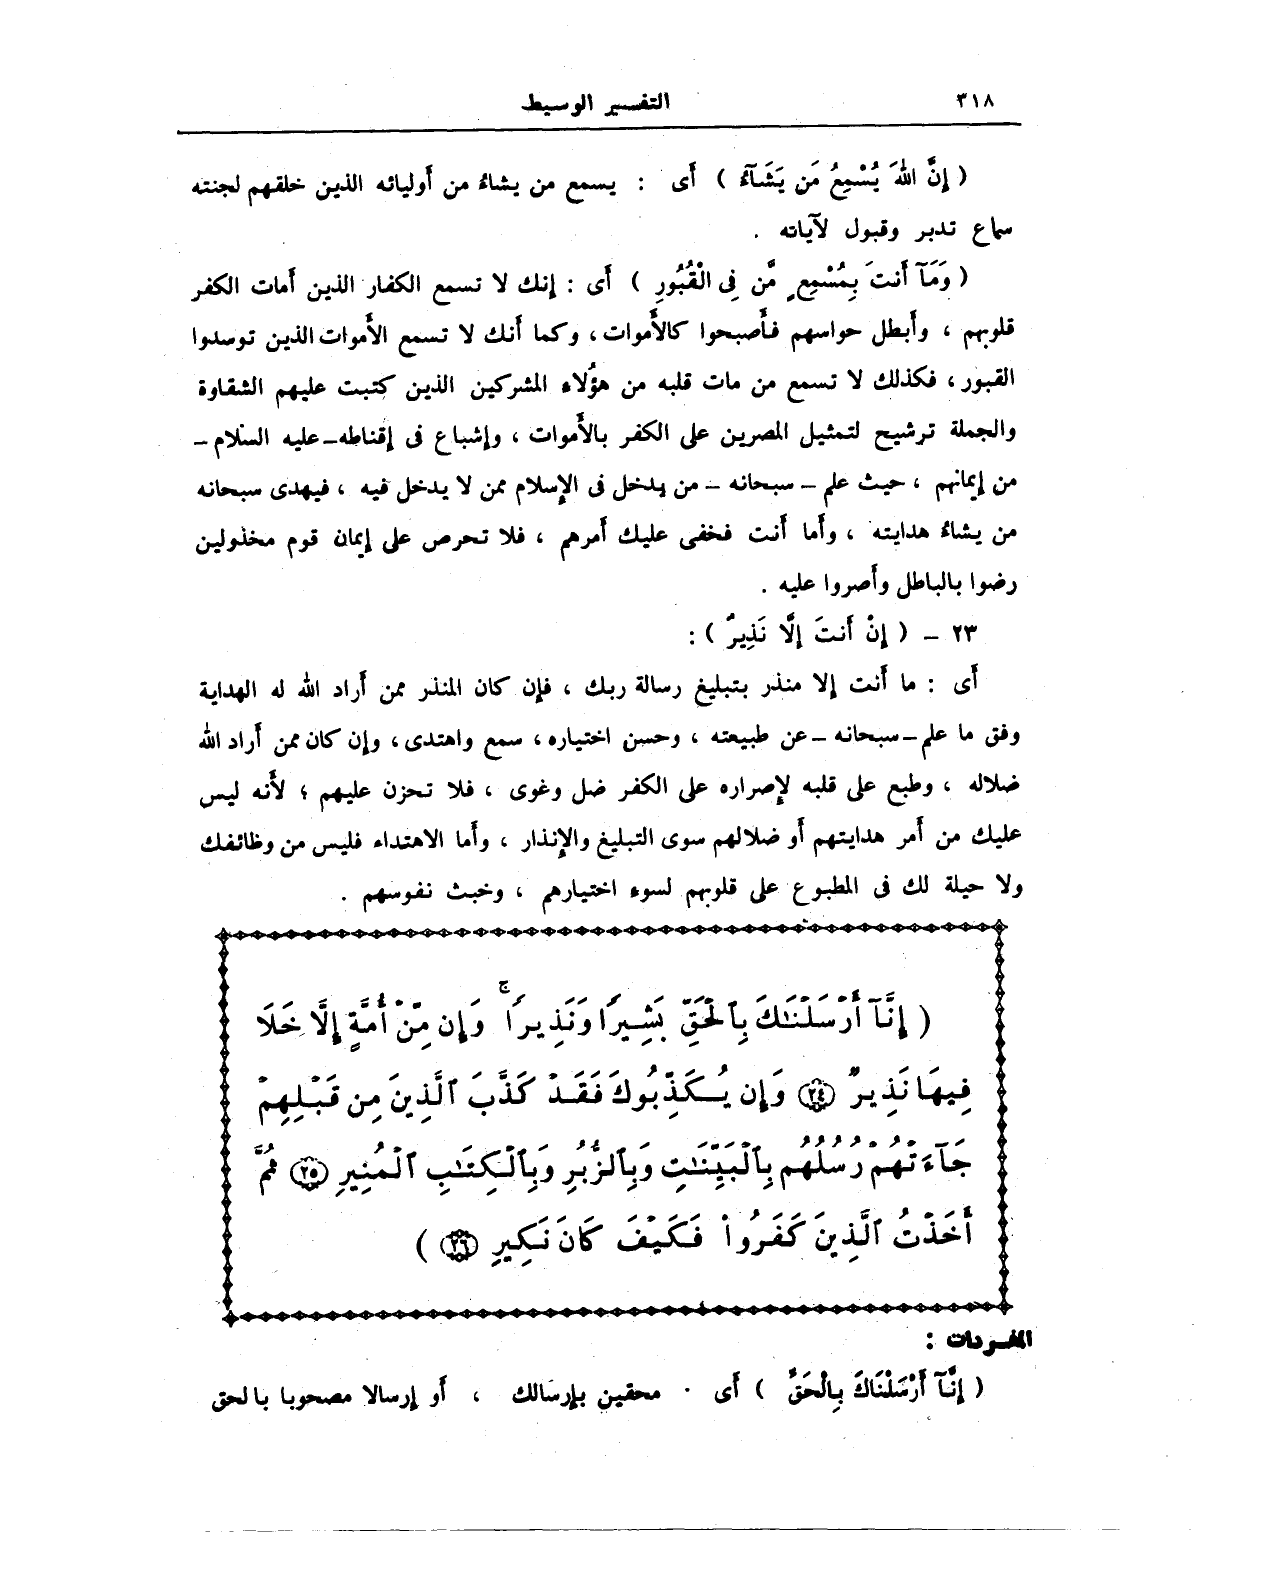 ٣١٨
التفسير الوسيط
( إِنَّ اللهَ يُسْمِعُ مَن يَشَآءُ ) أَى : يسمع من يشاءُ من أَوليائه الذين خلقهم لجنته
سماع تدبر وقبول لآياته .
( وَمَآ أَنتَ بِمُسْمِعٍ مَّن فِى الْقُبُورِ ) أَى : إِنك لا تسمع الكفار الذين أَمات الكفر
قلوبهم ، وأَبطل حواسهم فأَصبحوا كالأَموات ، وكما أَنك لا تسمع الأَموات الذين توسدوا
القبور ، فكذلك لا تسمع من مات قلبه من هؤُلاء المشركين الذين كتبت عليهم الشقاوة
والجملة ترشيح لتمثيل المصرين على الكفر بالأَموات ، وإِشباع فى إِقناطه - عليه السلام -
من إِيمانهم ، حيث علم - سبحانه - من يدخل فى الإِسلام ممن لا يدخل فيه ، فيهدى سبحانه
من يشاءُ هدايته ، وأَما أَنت فخفى عليك أَمرهم ، فلا تحرص على إِيمان قوم مخذولين
رضوا بالباطل وأَصروا عليه .
٢٣ - ( إِنْ أَنتَ إِلَّا نَذِيرٌ ) :
أَى : ما أَنت إِلا منذر بتبليغ رسالة ربك ، فإِن كان المنذر ممن أَراد الله له الهداية
وفق ما علم - سبحانه - عن طبيعته ، وحسن اختياره ، سمع واهتدى ، وإِن كان ممن أَراد الله
ضلاله ، وطبع على قلبه لإِصراره على الكفر ضل وغوى ، فلا تحزن عليهم ؛ لأَنه ليس
عليك من أَمر هدايتهم أَو ضلالهم سوى التبليغ والإِنذار ، وأَما الاهتداء فليس من وظائفك
ولا حيلة لك فى المطبوع على قلوبهم لسوء اختيارهم ، وخبث نفوسهم .
( إِنَّآ أَرْسَلْنَـٰكَ بِٱلْحَقِّ بَشِيرًا وَنَذِيرًاۚ وَإِن مِّنْ أُمَّةٍ إِلَّا خَلَا
فِيهَا نَذِيرٌ ۝٢٤ وَإِن يُكَذِّبُوكَ فَقَدْ كَذَّبَ ٱلَّذِينَ مِن قَبْلِهِمْ
جَآءَتْهُمْ رُسُلُهُم بِٱلْبَيِّنَـٰتِ وَبِٱلزُّبُرِ وَبِٱلْكِتَـٰبِ ٱلْمُنِيرِ ۝٢٥ ثُمَّ
أَخَذْتُ ٱلَّذِينَ كَفَرُوا۟ فَكَيْفَ كَانَ نَكِيرِ ۝٢٦ )
المفردات :
( إِنَّآ أَرْسَلْنَاكَ بِالْحَقِّ ) أَى . محقين بإِرسالك ، أَو إِرسالا مصحوبا بالحق